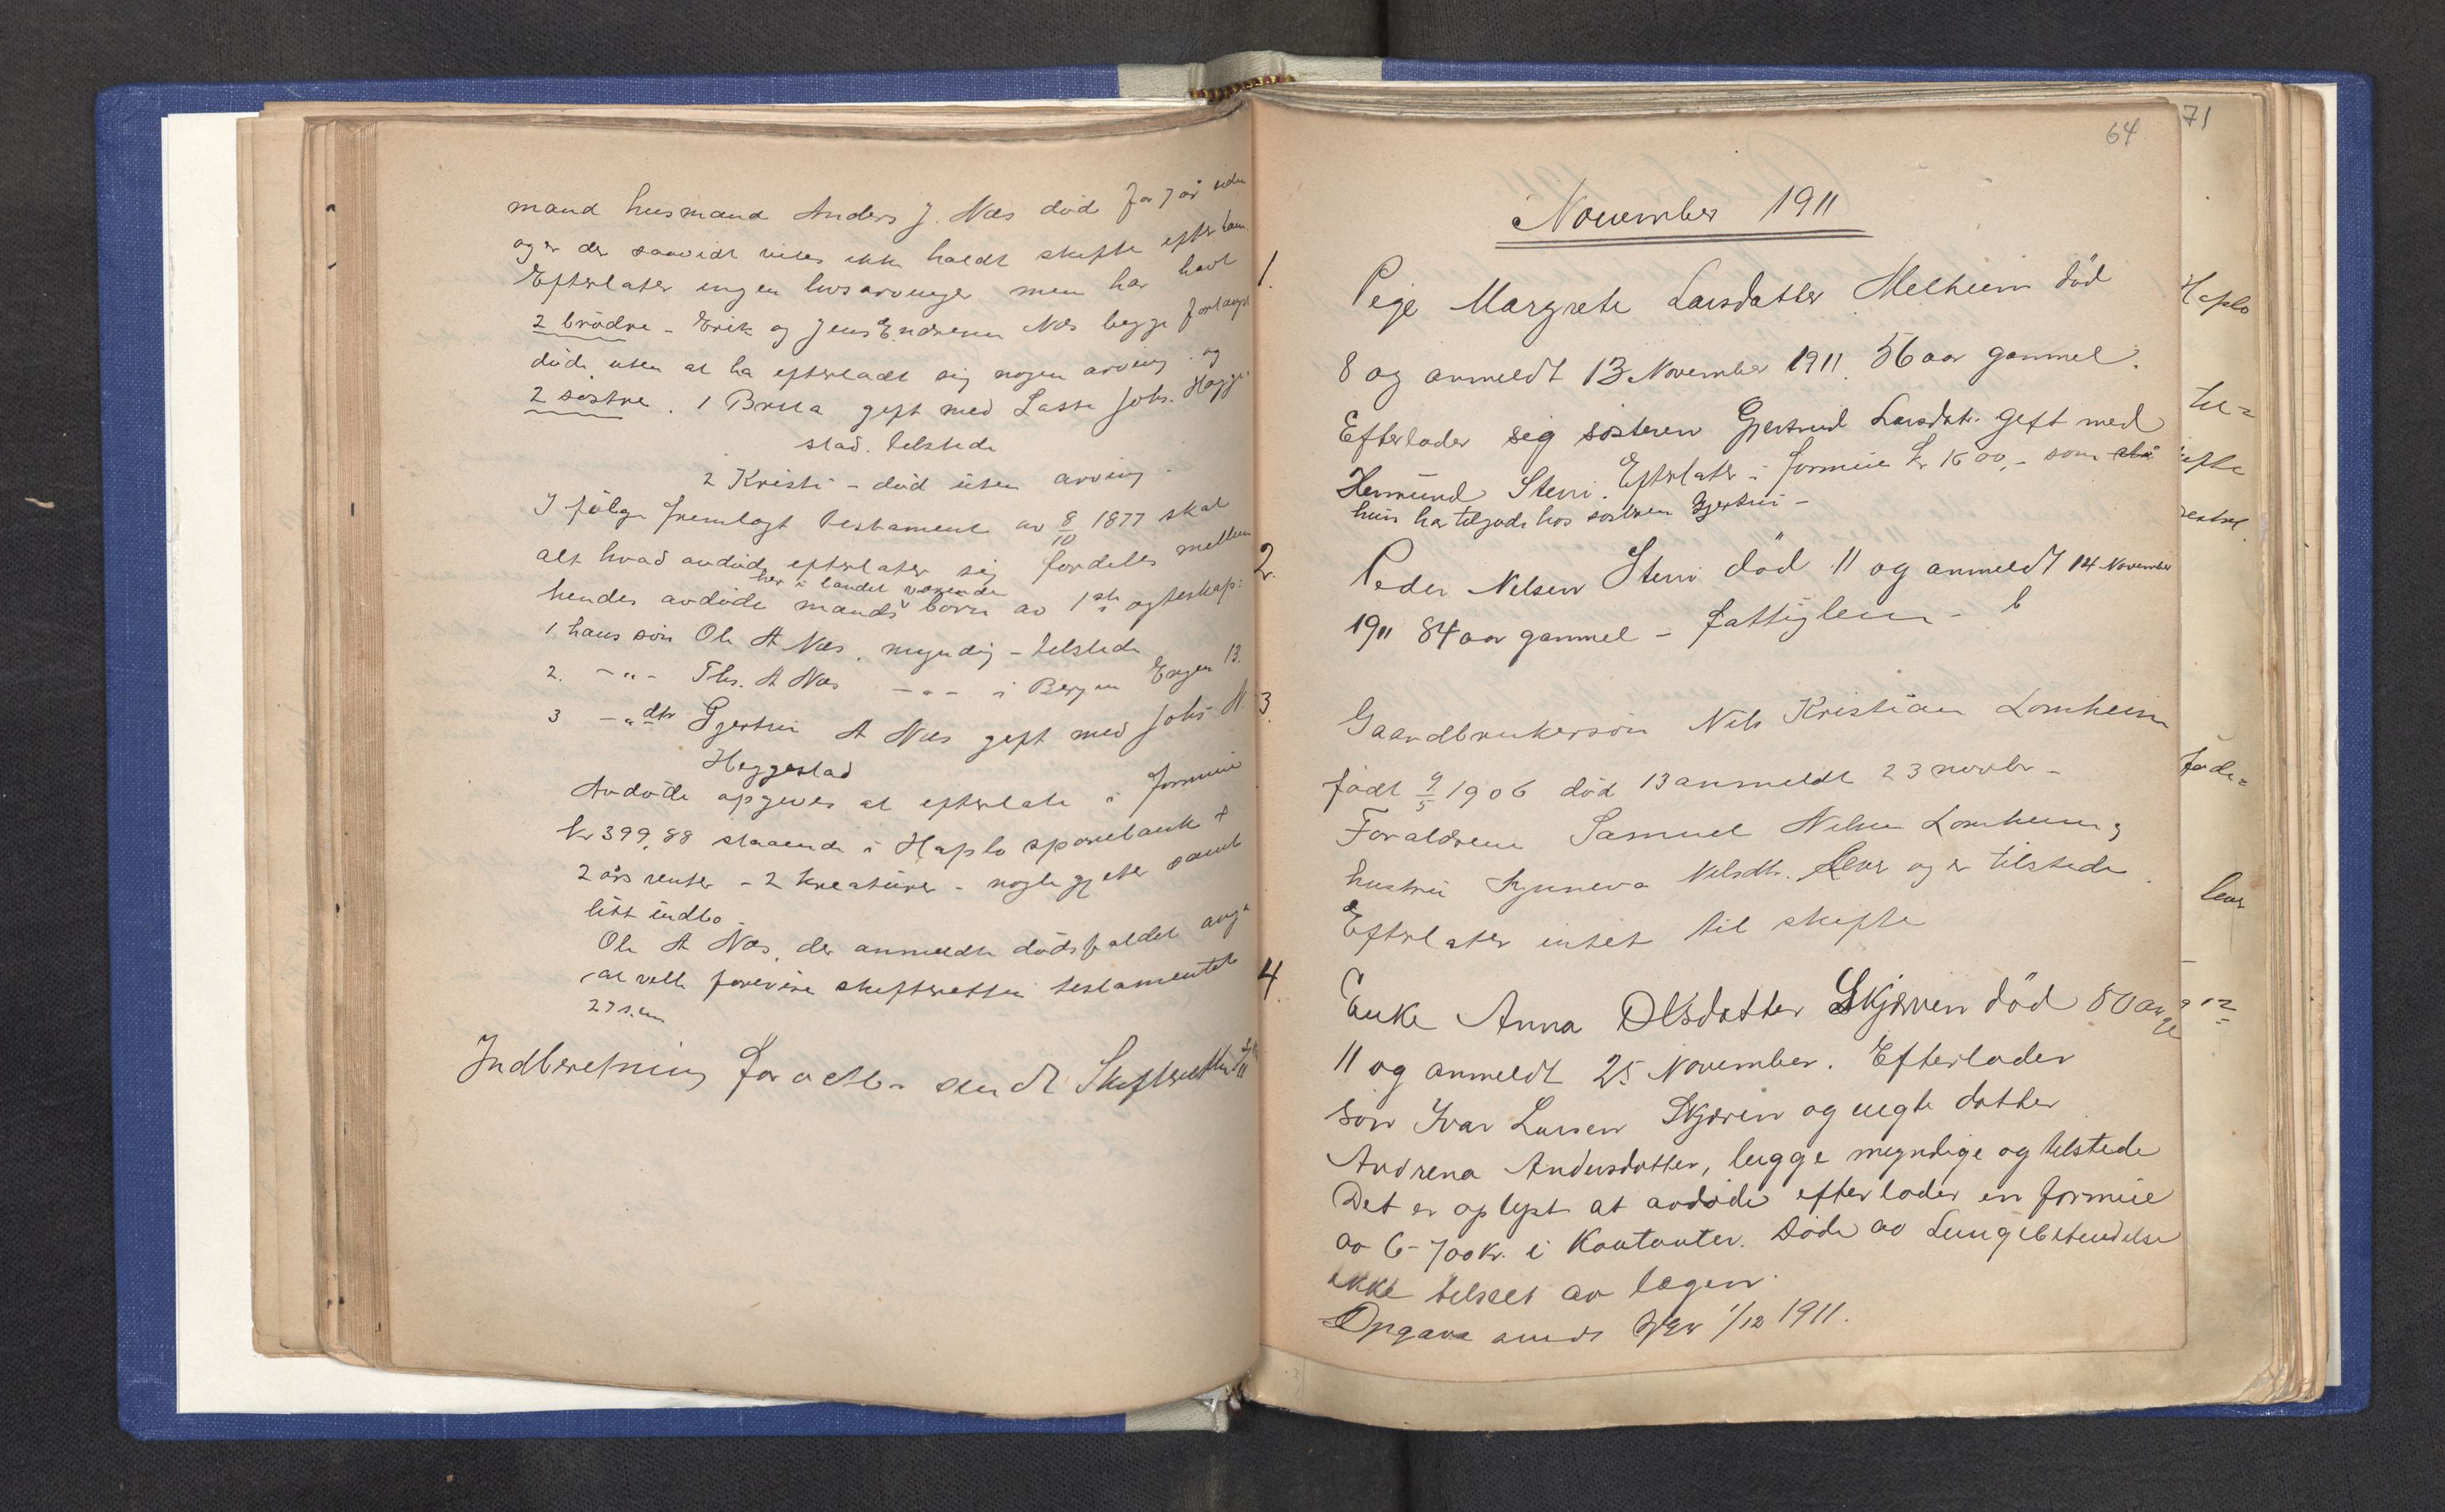 mand husmand Anders J. Næs døde for 7 år siden
og er der saavidt vites ikke holdt skifte efter ham.
Efterlater ingen livsarvinger men har havt
2 brødre - Erik og Jens Endresen Næs begge forlængst
døde uten at ha efterladt sig nogen arving. og
2 søstre. 1 Brita gift med Lasse Johs. Hegge-
stad. tilstede
2 Kristi - død uten arving.
I følge fremlagt testament av 8/10 1877 skal
alt hvad avdøde efterlater sig fordeles mellem
her i landet værende
hendes avdøde mands børn av 1ste egteskap:
1 hans søn Ole A Næs, myndig - tilstede
2. -"- Ths. A Næs -"- i Bergen Engen 13.
3 -" dtr Gjertrui A Næs gift med Johs A.
Heggestad
Avdøde opgives at efterlate i formue
kr 399,88 staaende i Hafslo sparebank +
2 års renter - 2 kreaturer - nogle gjeter samt
litt indbo.
Ole A Næs, der anmeldte dødsfaldet
at ville forevise skifteretten testamentet
27 s.m
Indberetning sendt Skifteretten
64
71
November 1911
1.
Pige Margrete Larsdatter Melheim død
8 og anmeldt 13 November 1911. 56 aar gammel.
Efterlader sig søsteren Gjertrud Larsdtr. gift med
Hermund Steni. Efterlater i formue kr 1500,- som
hun har tilgode hos søsteren Gjertrui -
2.
Peder Nelsen Steni død 11 og anmeldt 14 November
1911 84 aar gammel - fattiglem -
3.
Gaardbrukersøn Nils Kristian Lomheim
født 9/5 1906 død 13 anmeldt 23 novbr -
Forældrene Samuel Nilsen Lomheim og
hustru Synneva Nilsdtr. lever og er tilstede.
Efterlater intet til skifte
4.
Enke Anna Olsdatter Skjerven død 80 aar
11 og anmeldt 25 November. Efterlader
søn Ivar Larsen Skjerven og uegte datter
Andrena Andersdatter, begge myndige og tilstede
Det er oplyst at avdøde efterlader en formue
av 6-700 kr. i Kontanter. Døde av Lungebetendelse
ikke tilseet av lægen.
Opgave sendt 1/12 1911.
Hafslo
til=
lever